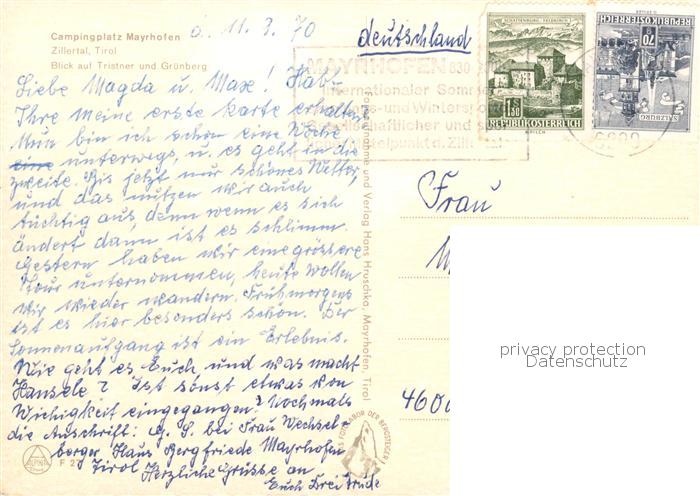 Campingplatz Mayrhofen
Zillertal, Tirol
Blick auf Tristner und Grünberg
d. 11. 3. 70
Deutschland
Liebe Magda u. Maxe! Habt
Ihre meine erste Karte erhalten
Nun bin ich schon eine Woche
unterwegs, u. es geht in die
zweite. Bis jetzt nur schönes Wetter,
und das nutzen wir auch
tüchtig aus, denn wenn es sich
ändert dann ist es schlimm.
Gestern haben wir eine grössere
Tour unternommen, heute wollen
wir wieder wandern. Frühmorgens
ist es hier besonders schön. Der
Sonnenaufgang ist ein Erlebnis.
Wie geht es Euch, und was macht
Hansele? Ist sonst etwas von
Wichigkeit eingegangen? Nochmals
die Anschrift: G. S. bei Frau Wechsel=
berger Haus Bergfriede Mayrhofen
Tirol Herzliche Grüsse an
Euch Drei Trude
ALPINA
F 2
Verlag Hans Hruschka, Mayrhofen, Tirol
DER BERGSTEIGER
SCHATTENBURG · FELDKIRCH
1.30
REPUBLIK ÖSTERREICH
SALZBURG
70
REPUBLIK ÖSTERREICH
MAYRHOFEN 630
Internationaler Somm
und Winters
Gesellschaftlicher und
punkt d. Ziller
6290
Frau
4600
privacy protection
Datenschutz